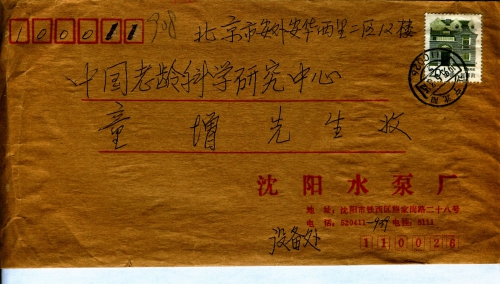 100011
北京市安外安华西里二区12楼
中国老龄科学研究中心
童增先生收
沈阳水泵厂
地 址:沈阳市铁西区
路二十八号
电 话:520411-939 电挂:5111
设备处
110026